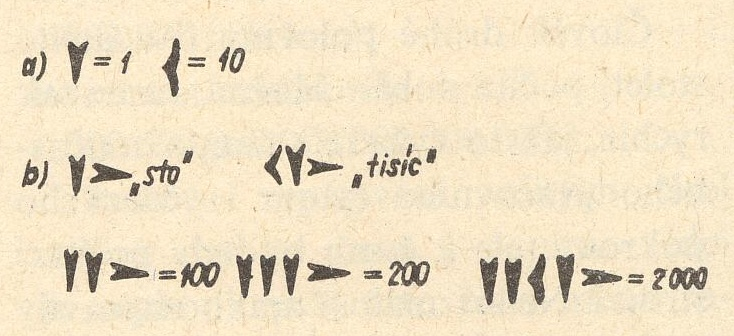 a) 𒁹 = 1 𒌋 = 10
b) 𒁹𒀸 „sto" 𒌋𒁹𒀸 „tisíc"
𒁹𒁹𒀸 = 100 𒁹𒁹𒁹𒀸 = 200 𒁹𒁹𒌋𒁹𒀸 = 2000